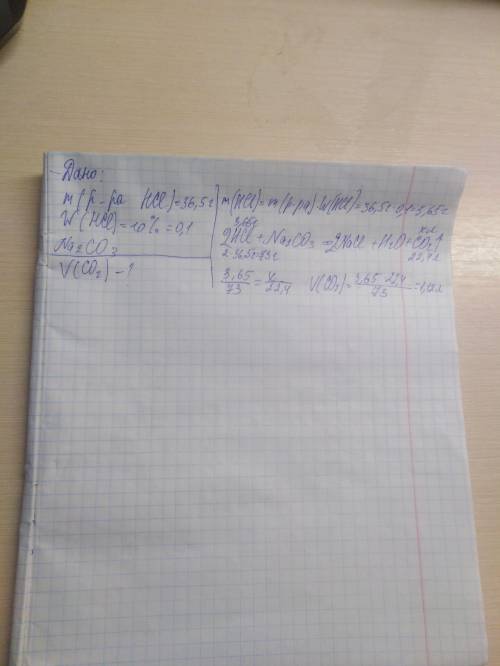 Дано:
m(р-ра HCl)=36,5г
W(HCl)=10%=0,1
Na2CO3
V(CO2)-?
m(HCl)=m(р-ра)·W(HCl)=36,5г·0,1=3,65г
3,65г х л
2HCl+Na2CO3=2NaCl+H2O+CO2↑
2·36,5г=73г 22,4л
3,65/73=х/22,4 V(CO2)=3,65·22,4/73=1,12л